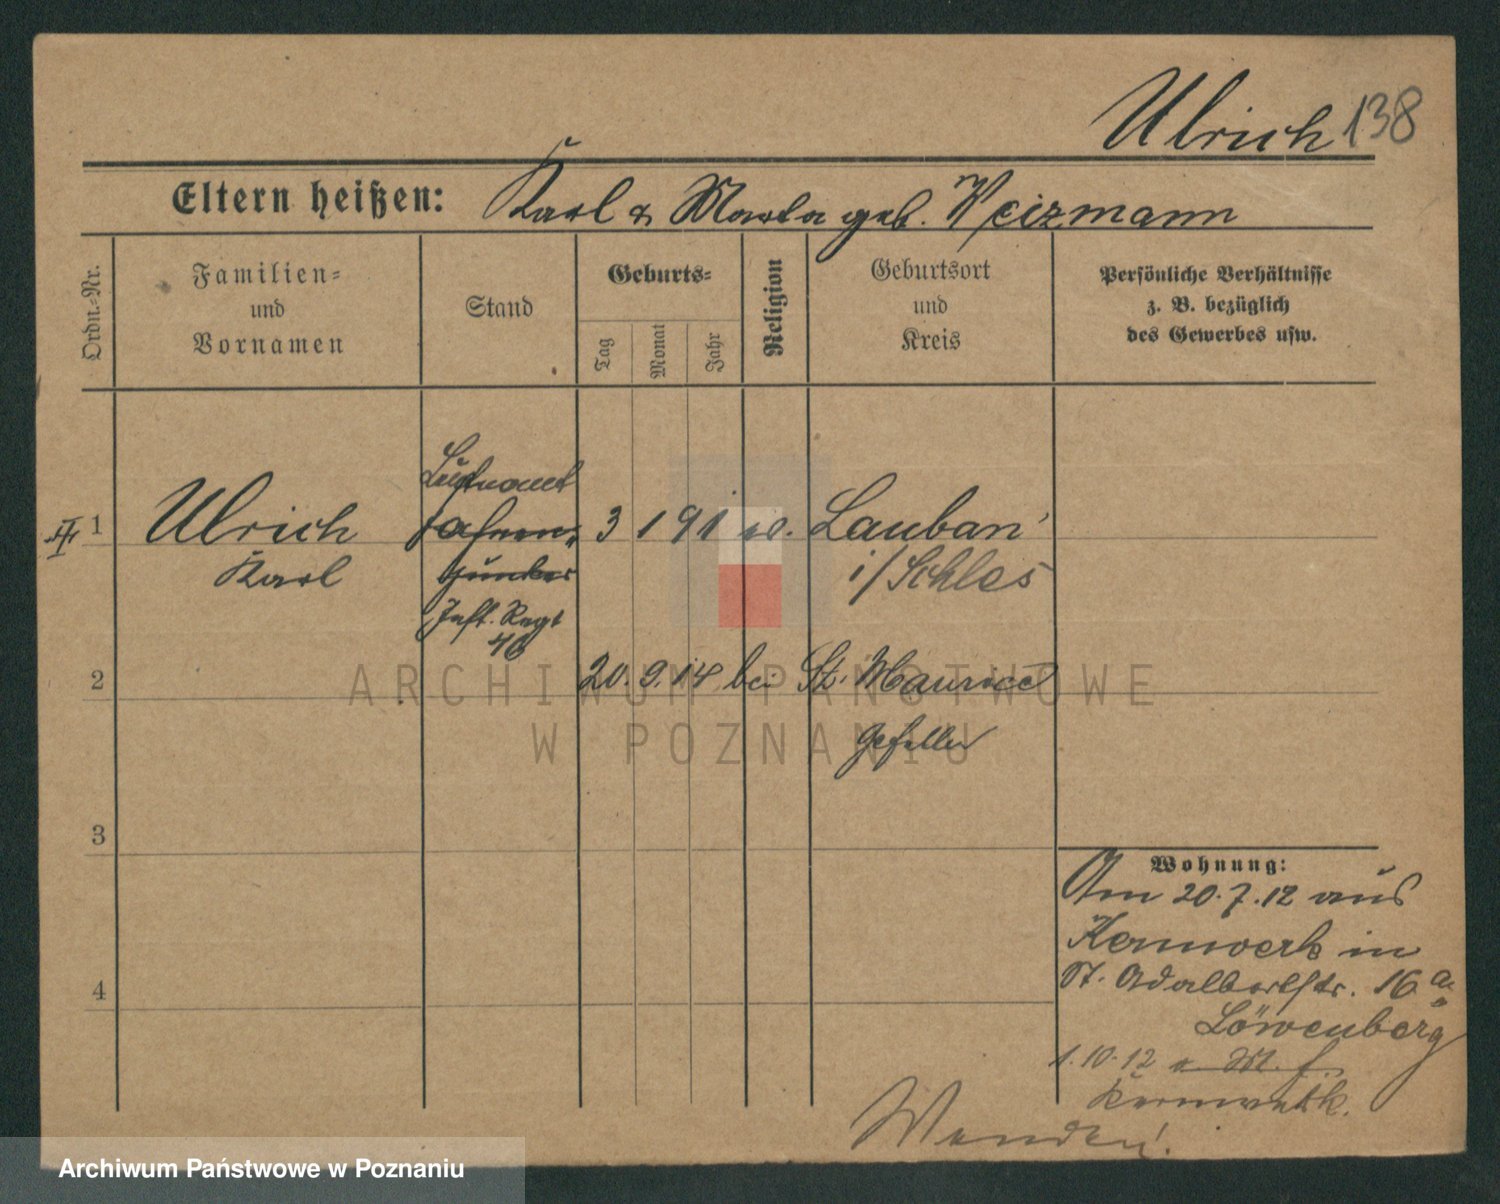 Ulrich 138
Eltern heißen: Karl & Marta geb. Weizmann
Ordn.-Nr.
Familien-
und
Vornamen
Stand
Geburts-
Tag
Monat
Jahr
Religion
Geburtsort
und
Kreis
Persönliche Verhältnisse
z. B. bezüglich
des Gewerbes usw.
Leutnant
1 Ulrich Fahnen- 3 1 91 Lauban
Karl junker i/Schles
Inft. Regt
46
2 20. 9. 14 bei St. Maurice
gefallen
3
4
Wohnung:
Am 20.7.12 aus
Kernwerk in
St. Adalbertstr. 16a
Löwenberg
1.10.12
Kernwerk.
Wenden!
ARCHIWUM PAŃSTWOWE
W POZNANIU
Archiwum Państwowe w Poznaniu